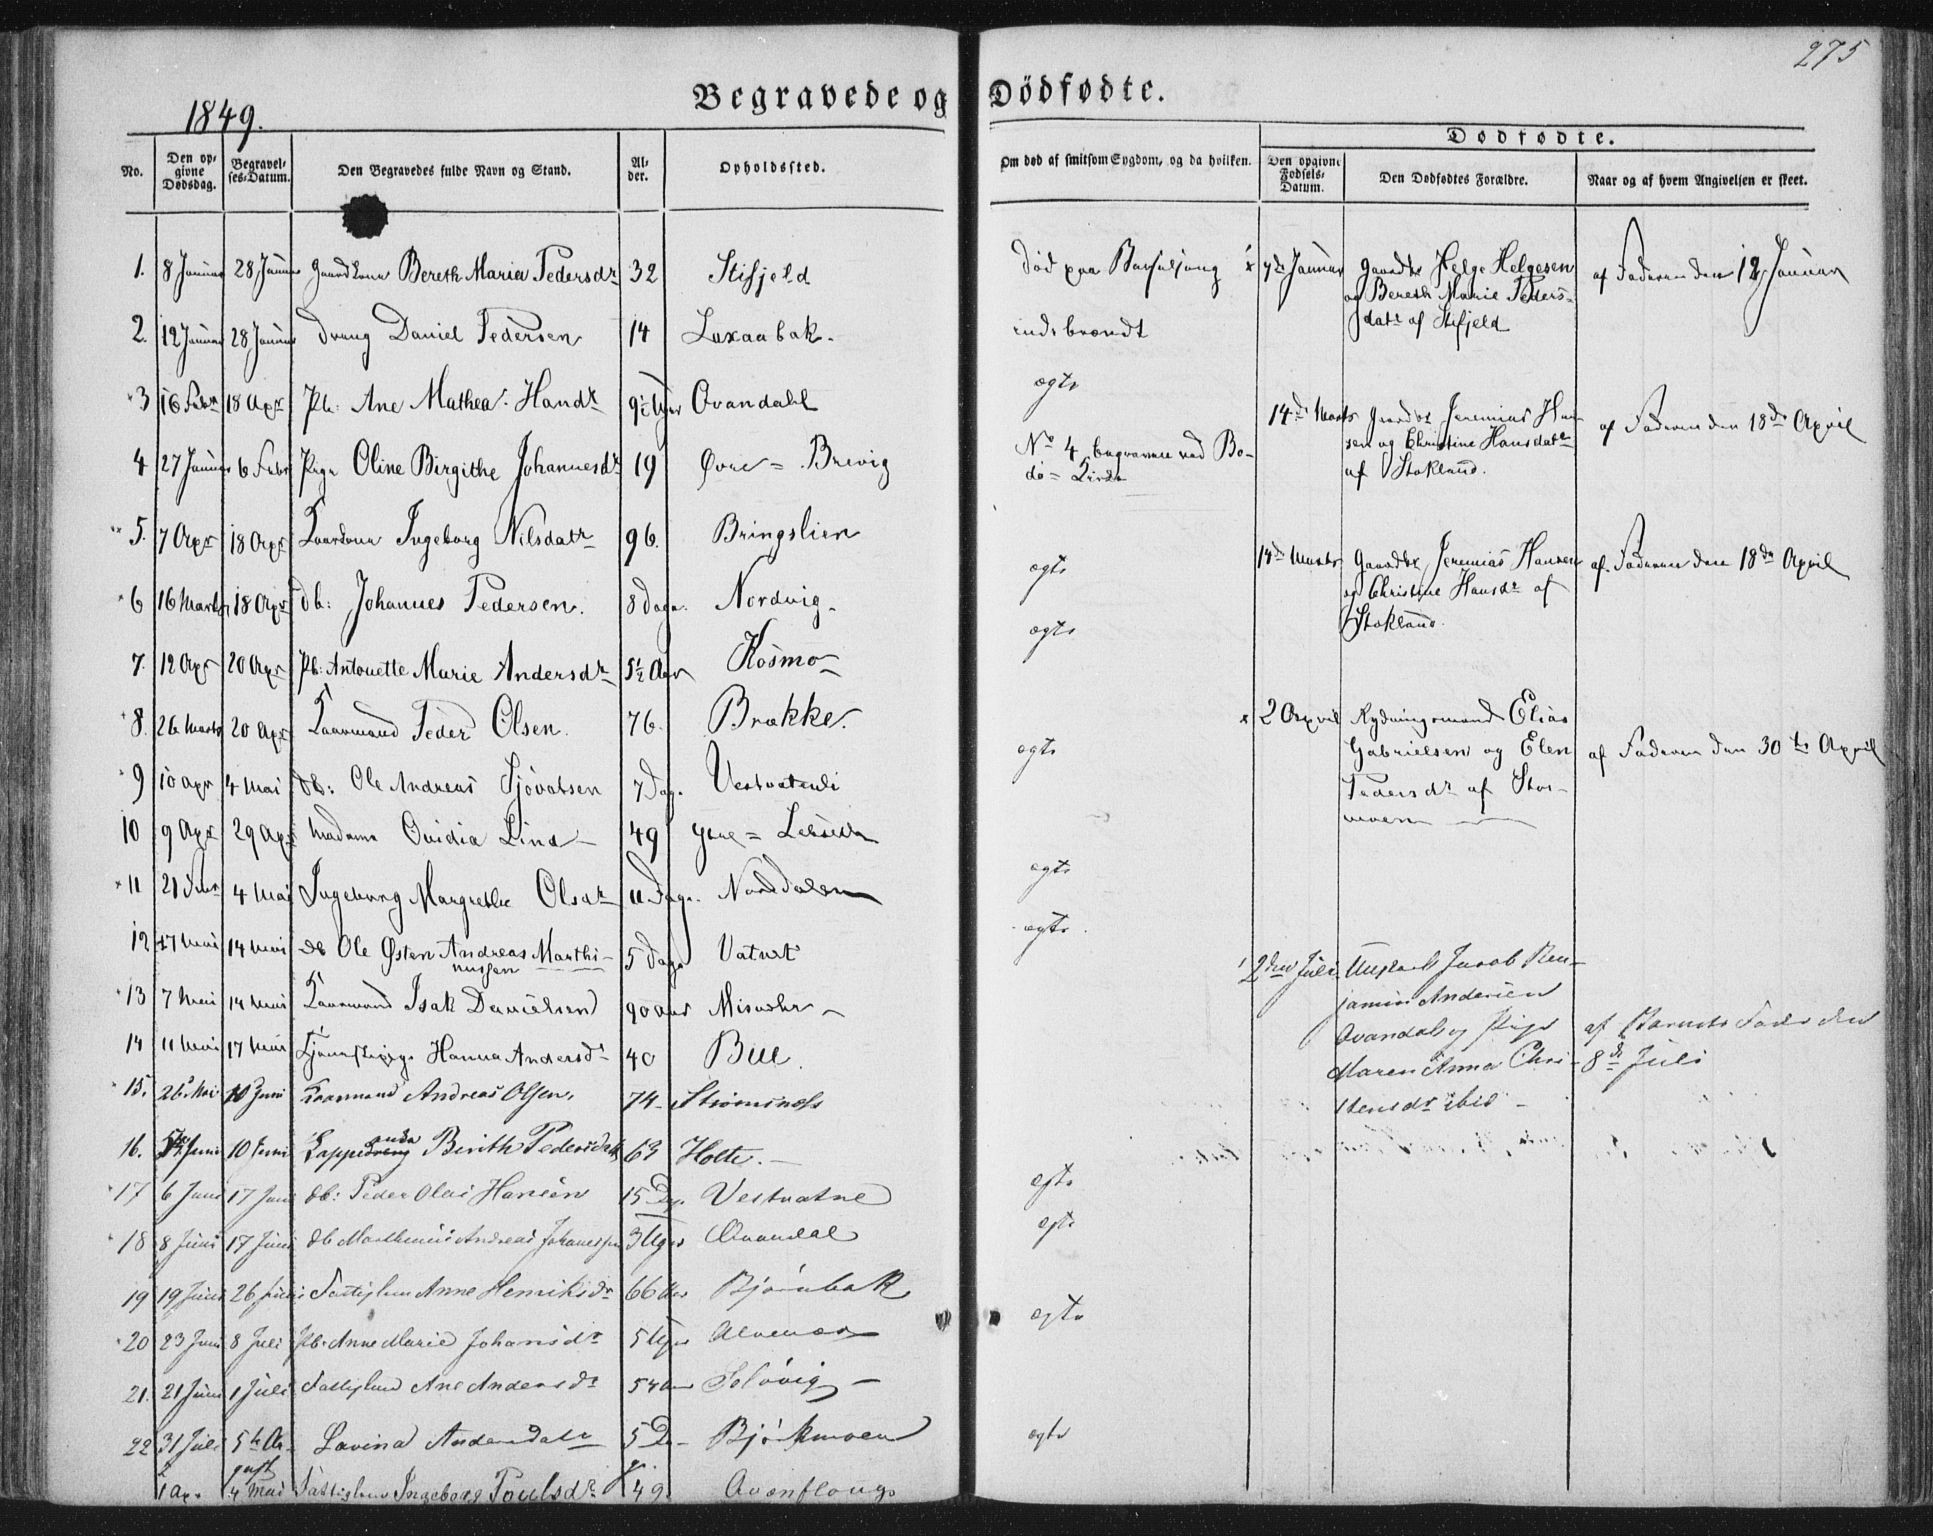 275
1849.
Begravede og Dödfødte.
No.
Den opgivne Dødsdag.
Begravelses-Datum.
Den Begravedes fulde Navn og Stand.
Alder.
Opholdssted.
Om død af smitsom Sygdom, og da hvilken.
Dødfødte.
Den opgivne Fødsels-Datum.
Den Dødfødtes Forældre.
Naar og af hvem Angivelsen er skeet.
1. 8 Januar 28 Januar Gaardkone Bereth Maria Pedersdr 32 Stifjeld
2. 12 Januar 28 Januar Dreng Daniel Pedersen 14 Laxaabak.
3 16 Febr 18 Apr Pb: Ane Mathea Hansdr 9 Uger Ovandahl
4 27 Januar 6 Febr Pige Oline Birgithe Johannesdr 19 Øvre = Brevig
5. 7 Apr 18 Apr Kaardkone Ingeborg Nilsdatr 96. Bringslien
6 16 Marts 18 Apr Db: Johannes Pedersen. 8 Dage. Nordvig.
7. 12 Apr 20 Apr Pb: Antonette Marie Andersdr 5½ Aar Kosmo
8. 26 Marts 20 Apr Kaarmand Peder Olsen. 76. Brække.
9 10 Apr 4 Mai Db: Ole Andreas Sjovatsen 7 Dag.
10 9 Apr 29 Apr Madame Ovidia Lind 49
11 21 4 Mai Ingeborg Margrethe Olsdr 11 Dage. Norddalen
12 17 Mai 14 Mai Db Ole Østen Andreas Marthinussen 5 Dage Vatnet
13 7 Mai 14 Mai Kaarmand Isak Danielsen 90 Aar Misvær
14 11 Mai 17 Mai Hanna Andersdr 40 Bue.
15. 26 Mai 10 Juni Kaarmand Andreas Olsen. 74 Strømsnes
16. Juni 10 Juni Lappe Berith Pedersdatr 63 Holte.
17 6 Juni 17 Juni Db: Peder Olai Hansen 15 Dge. Vestvatne
18 8 Juni 17 Juni Db Marthinus Andreas Johanessen 3 Uger Ovandal
19 19 Juni 26 Juni Fattiglem Anne Henriksdr 66 Aar Bjørnbak
20 23 Juni 8 Juli Pb: Anne Marie Johansdr 5 Uger Alvenes
21. 21 Juni 1 Juli Fattiglem Ane Andersdr 54 Aar Solövig
22 31 Juli 5te August Lavina Andersdatr 5 D Björkmoen
1 Ap. 4 Mai Fattiglem Ingeborg Poulsdr 49
død paa Barselseng
indebrændt
ægte
No 4 begraven ved Bodø = Kirke
ægte
ægte
ægte
ægte
ægte
ægte
ægte
ægte
ægte
7de Januar
Gaardbr Helge Helgesen
og Bereth Marie Pedersdatr af Stifjeld
af Faderen den 12 Januar
14de Marts
Gaardbr Jeremias Hansen og Christine Hansdatr
af Stokland.
af Faderen den 18de April
14de Marts
Gaardbr Jeremias Hansen
og Christine Hansdr af
Stokland.
af Faderen den 18de April
2 April
Rydningsmand Elias
Gabrielsen og Elen
Pedersdr af Stormoen
af Faderen den 30te April
2den Juli
Ungkarl Jacob Benjamin Andersen
Ovandal og Pige
Maren Anna Christensdr ibid
af Barnets Fader den
8de Juli